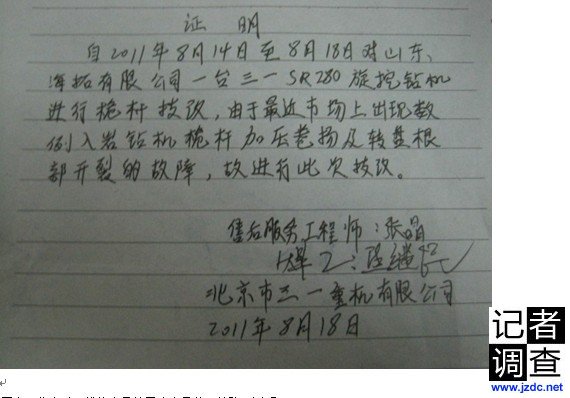 证 明
自2011年8月14日至8月18日对山东
海拓有限公司一台三一SR280旋挖钻机
进行桅杆技改，由于最近市场上出现数
例入岩钻机桅杆加压卷扬及转盘根
部开裂的故障，故进行此次技改。
售后服务工程师：张晶
焊工：
北京市三一重机有限公司
2011年8月18日
记者
调查
www.jzdc.net